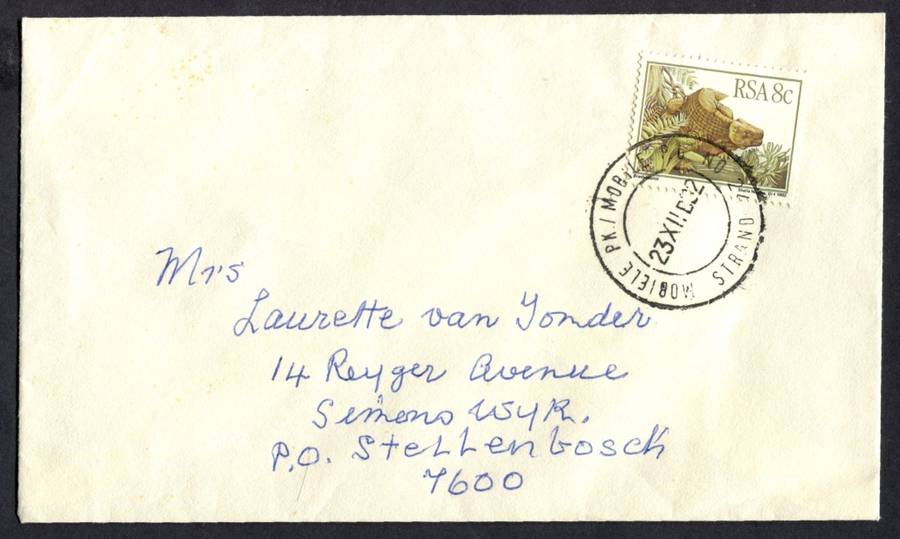 RSA 8c
MOBIELE PK./MOBILE
STRAND
23 XII 82
Mrs
Laurette van Tonder
14 Reyger Avenue
Simons Wyk.
P.O. Stellenbosch
7600